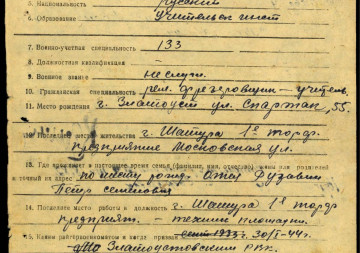 5. Национальность русский
6. Образование учительск. инст
7. Военно-учетная специальность 133
8. Должностная квалификация –
9. Военное звание не служ.
10. Гражданская специальность фрезеровщик – учитель
11. Место рождения г. Златоуст ул. Спартак, 55.
жительства г. Шатура 1е торф.
предприятие Московская ул.
13. Где проживает в настоящее время семья (фамилия, имя, отчество) или родителей
и точный их адрес по месту рожд. Отец
Петр
14. Последнее место работы и должность г. Шатура 1е торф
предприят. – техник площадки
15. Каким райгорвоенкоматом и когда призван 30/I-44 г.
Златоустовским РВК.